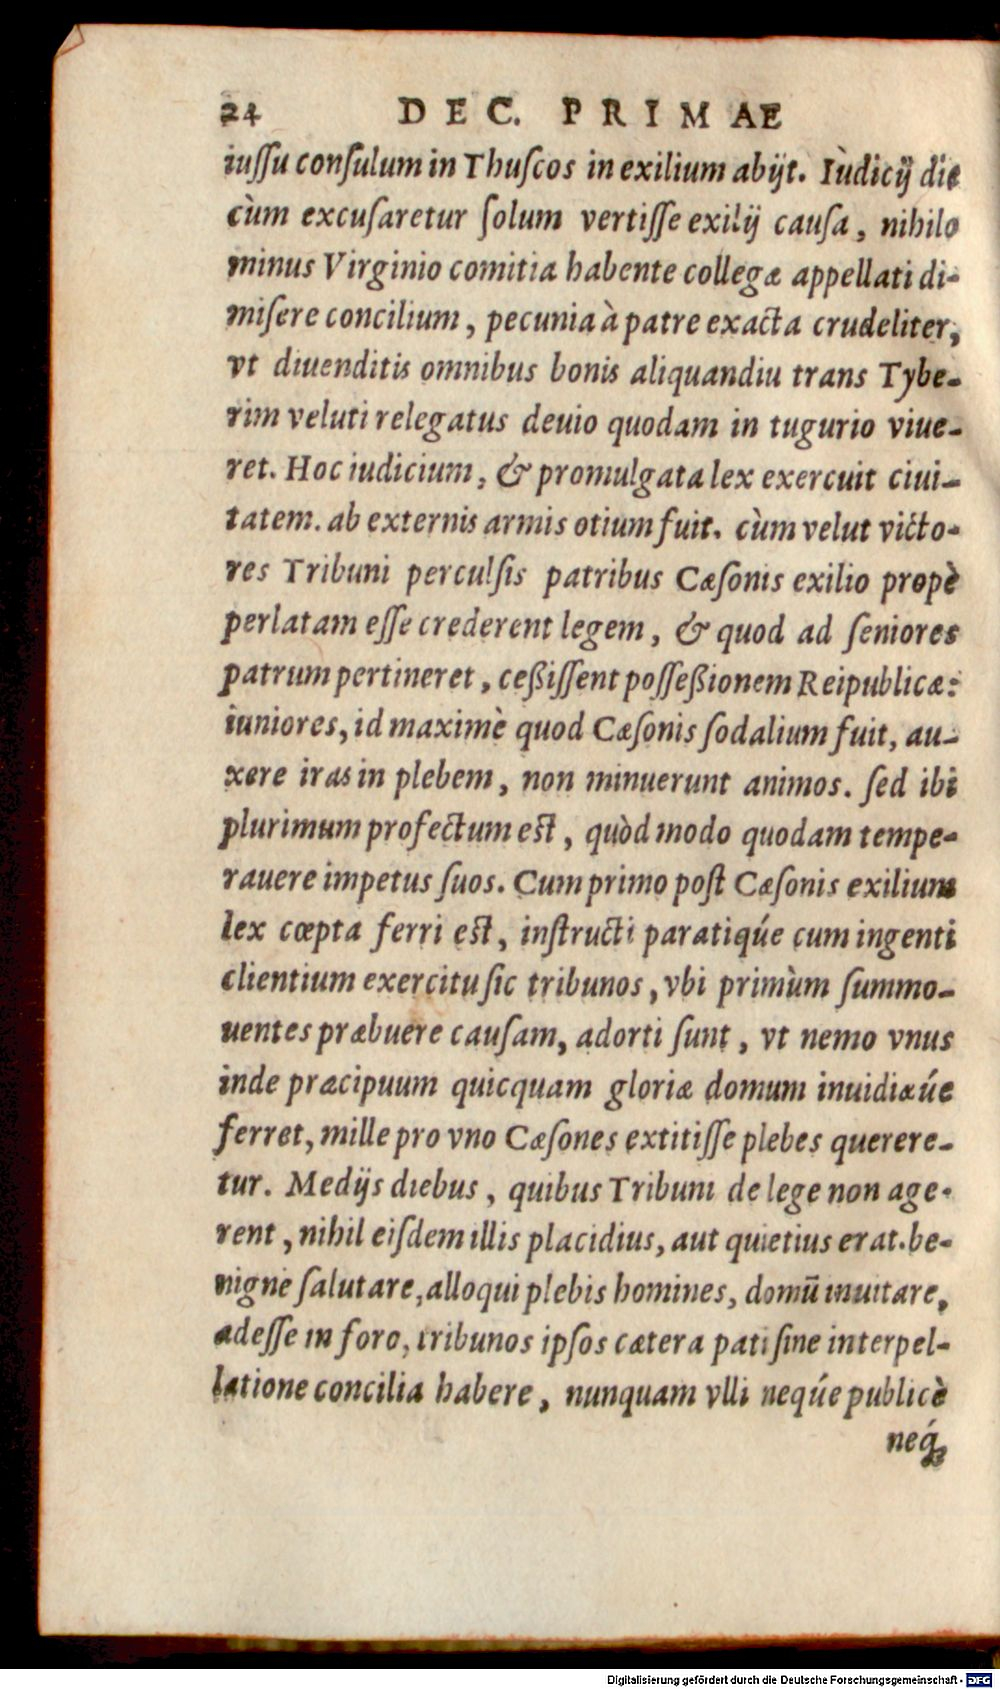 24 DEC. PRIMAE
iuſſu conſulum in Thuſcos in exilium abijt. Iùdicij die
cùm excuſaretur ſolum vertiſſe exilij cauſa, nihilo
minus Virginio comitia habente collegæ appellati di-
miſere concilium, pecunia à patre exacta crudeliter,
vt diuenditis omnibus bonis aliquandiu trans Tybe-
rim veluti relegatus deuio quodam in tugurio viue-
ret. Hoc iudicium, & promulgata lex exercuit ciui-
tatem. ab externis armis otium fuit. cùm velut victo-
res Tribuni perculſis patribus Cæſonis exilio propè
perlatam eſſe crederent legem, & quod ad ſeniores
patrum pertineret, ceßiſſent poſſeßionem Reipublicæ:
iuniores, id maximè quod Cæſonis ſodalium fuit, au-
xere iras in plebem, non minuerunt animos. ſed ibi
plurimum profectum eſt, quòd modo quodam tempe-
rauere impetus ſuos. Cum primo poſt Cæſonis exilium
lex cœpta ferri eſt, inſtructi paratiqúe cum ingenti
clientium exercitu ſic tribunos, vbi primùm ſummo-
uentes præbuere cauſam, adorti ſunt, vt nemo vnus
inde præcipuum quicquam gloriæ domum inuidiæúe
ferret, mille pro vno Cæſones extitiſſe plebes querere-
tur. Medijs diebus, quibus Tribuni de lege non age-
rent, nihil eiſdem illis placidius, aut quietius erat. be-
nigne ſalutare, alloqui plebis homines, domū inuitare,
adeſſe in foro, tribunos ipſos cætera pati ſine interpel-
latione concilia habere, nunquam vlli neqúe publicè
neq́;
Digitalisierung gefördert durch die Deutsche Forschungsgemeinschaft - DFG